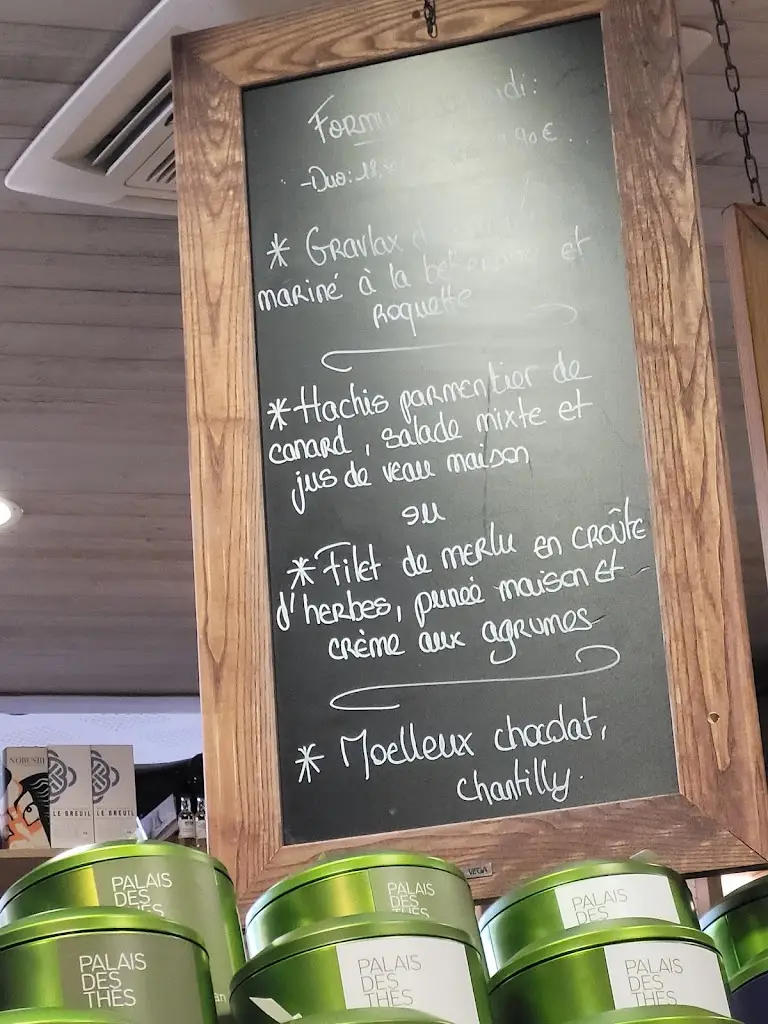 midi:
-Duo: 90€
* Gravlax
mariné à la et
roquette
*Hachis parmentier de
canard, salade mixte et
jus de veau maison
ou
*Filet de merlu en croûte
d'herbes, purée maison et
crème aux agrumes
* Moelleux chocolat,
chantilly.
NOBUSHI
LE BREUIL LE BREUIL
VEGA
PALAIS
DES
THÉS
PALAIS
DES
THÉS
PALAIS
DES
PALAIS
DES
THÉS
PALAIS
DES
THÉS
PALAIS
DES
THÉS